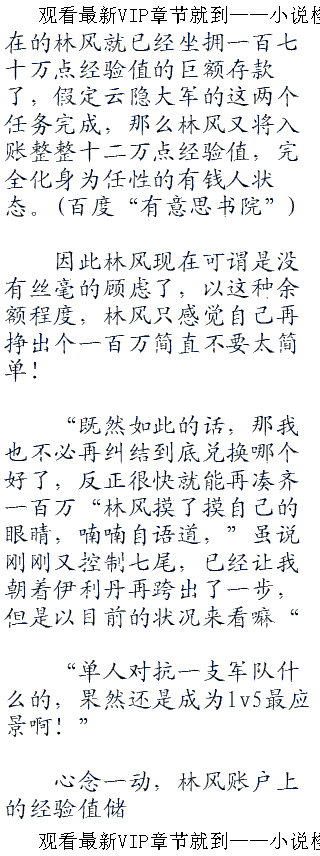 观看最新VIP章节就到——小说
在的林风就已经坐拥一百七
十万点经验值的巨额存款
了，假定云隐大军的这两个
任务完成，那么林风又将入
账整整十二万点经验值，完
全化身为任性的有钱人状
态。(百度“有意思书院”)
因此林风现在可谓是没
有丝毫的顾虑了，以这种余
额程度，林风只感觉自己再
挣出个一百万简直不要太简
单！
“既然如此的话，那我
也不必再纠结到底兑换哪个
好了，反正很快就能再凑齐
一百万“林风摸了摸自己的
眼睛，喃喃自语道，”虽说
刚刚又控制七尾，已经让我
朝着伊利丹再跨出了一步，
但是以目前的状况来看嘛“
“单人对抗一支军队什
么的，果然还是成为1v5最应
景啊！”
心念一动，林风账户上
的经验值储
观看最新VIP章节就到——小说